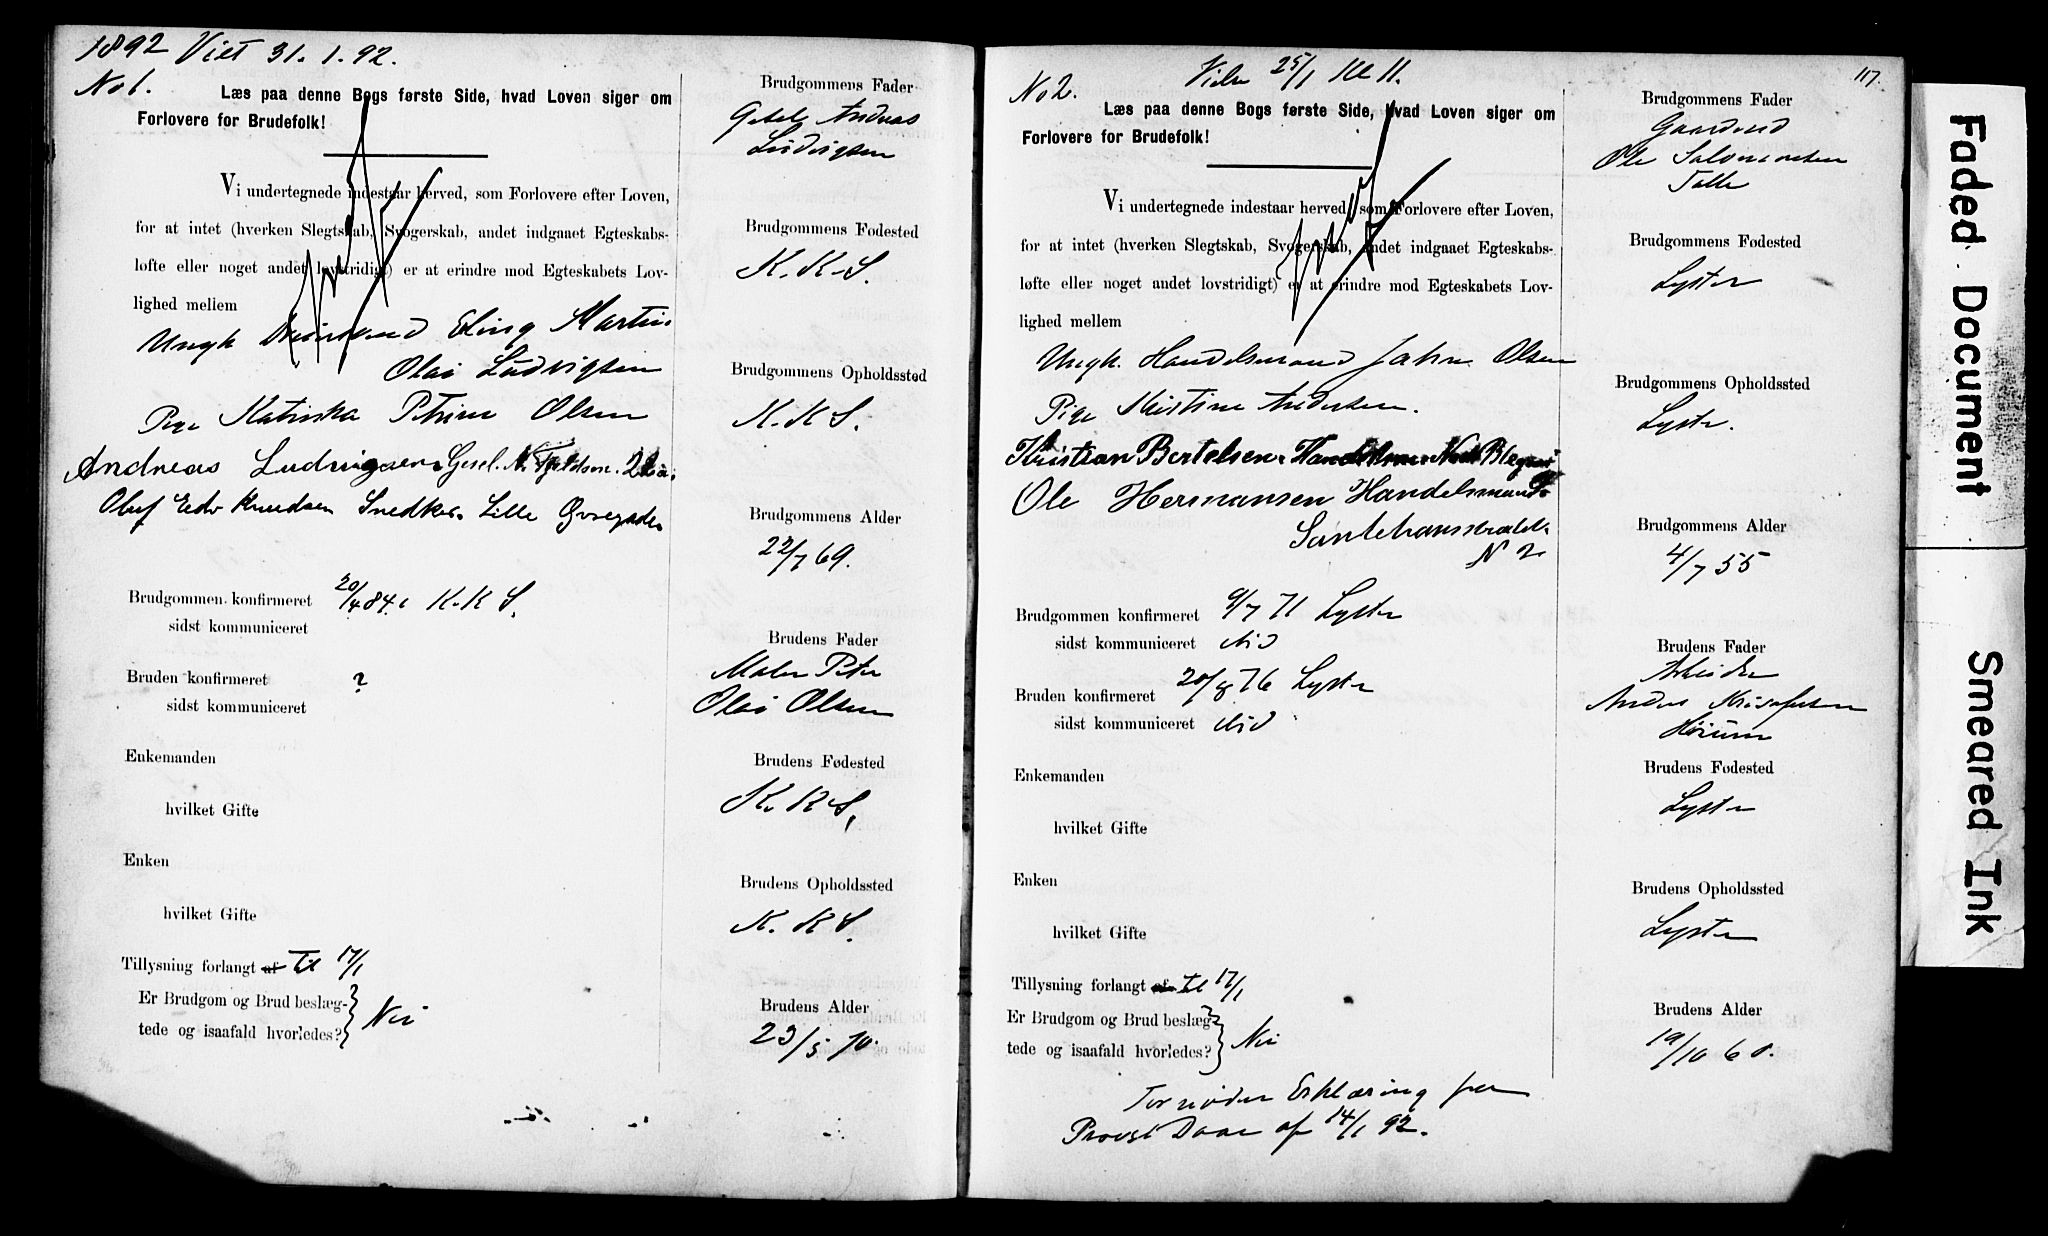 1892 Viet 31.1.92.
No 1.
Læs paa denne Bogs første Side, hvad Loven siger om
Forlovere for Brudefolk!
Vi undertegnede indestaar herved, som Forlovere efter Loven,
for at intet (hverken Slegtskab, Svogerskab, andet indgaaet Egteskabs-
løfte eller noget andet lovstridigt) er at erindre mod Egteskabets Lov-
lighed mellem
Ungk Elling Martin
Olai Ludvigsen
Pige Katinka Petrine Olsen
Andreas Ludvigsen Gesel. N.
Oluf Edv Knudsen Snedker. Lille Øvregaden
Brudgommen konfirmeret 20/4 84. K.K.S.
sidst kommuniceret
Bruden konfirmeret ?
sidst kommuniceret
Enkemanden
hvilket Gifte
Enken
hvilket Gifte
Tillysning forlangt af til 17/1
Er Brudgom og Brud beslæg-
tede og isaafald hvorledes? Nei
Brudgommens Fader
Andreas
Ludvigsen
Brudgommens Fødested
K.K.S.
Brudgommens Opholdssted
K.K.S.
Brudgommens Alder
22/7 69.
Brudens Fader
Maler Peter
Olai Olsen
Brudens Fødested
K.K.S.
Brudens Opholdssted
K.K.S.
Brudens Alder
23/5 70.
117.
No 2. Vielse 25/1 Kl 11.
Læs paa denne Bogs første Side, hvad Loven siger om
Forlovere for Brudefolk!
Vi undertegnede indestaar herved, som Forlovere efter Loven,
for at intet (hverken Slegtskab, Svogerskab, andet indgaaet Egteskabs-
løfte eller noget andet lovstridigt) er at erindre mod Egteskabets Lov-
lighed mellem
Ungk. Handelsmand Olsen
Pige Kristine Andersen.
Kristian Bertelsen.
Ole Hermansen Handelsmand
N 2
Brudgommen konfirmeret 9/7 71 Lyster
sidst kommuniceret
Bruden konfirmeret 20/8 76 Lyster
sidst kommuniceret
Enkemanden
hvilket Gifte
Enken
hvilket Gifte
Tillysning forlangt af til 17/1
Er Brudgom og Brud beslæg-
tede og isaafald hvorledes? Nei
Fornøden Erklæring fra
Provst Daae af 14/1 92.
Brudgommens Fader
Ole Salomonsen
Brudgommens Fødested
Lyster
Brudgommens Opholdssted
Lyster.
Brudgommens Alder
4/7 55
Brudens Fader
Arbeider
Anders
Brudens Fødested
Lyster
Brudens Opholdssted
Lyster
Brudens Alder
19/10 60.
Faded Document
Smeared Ink